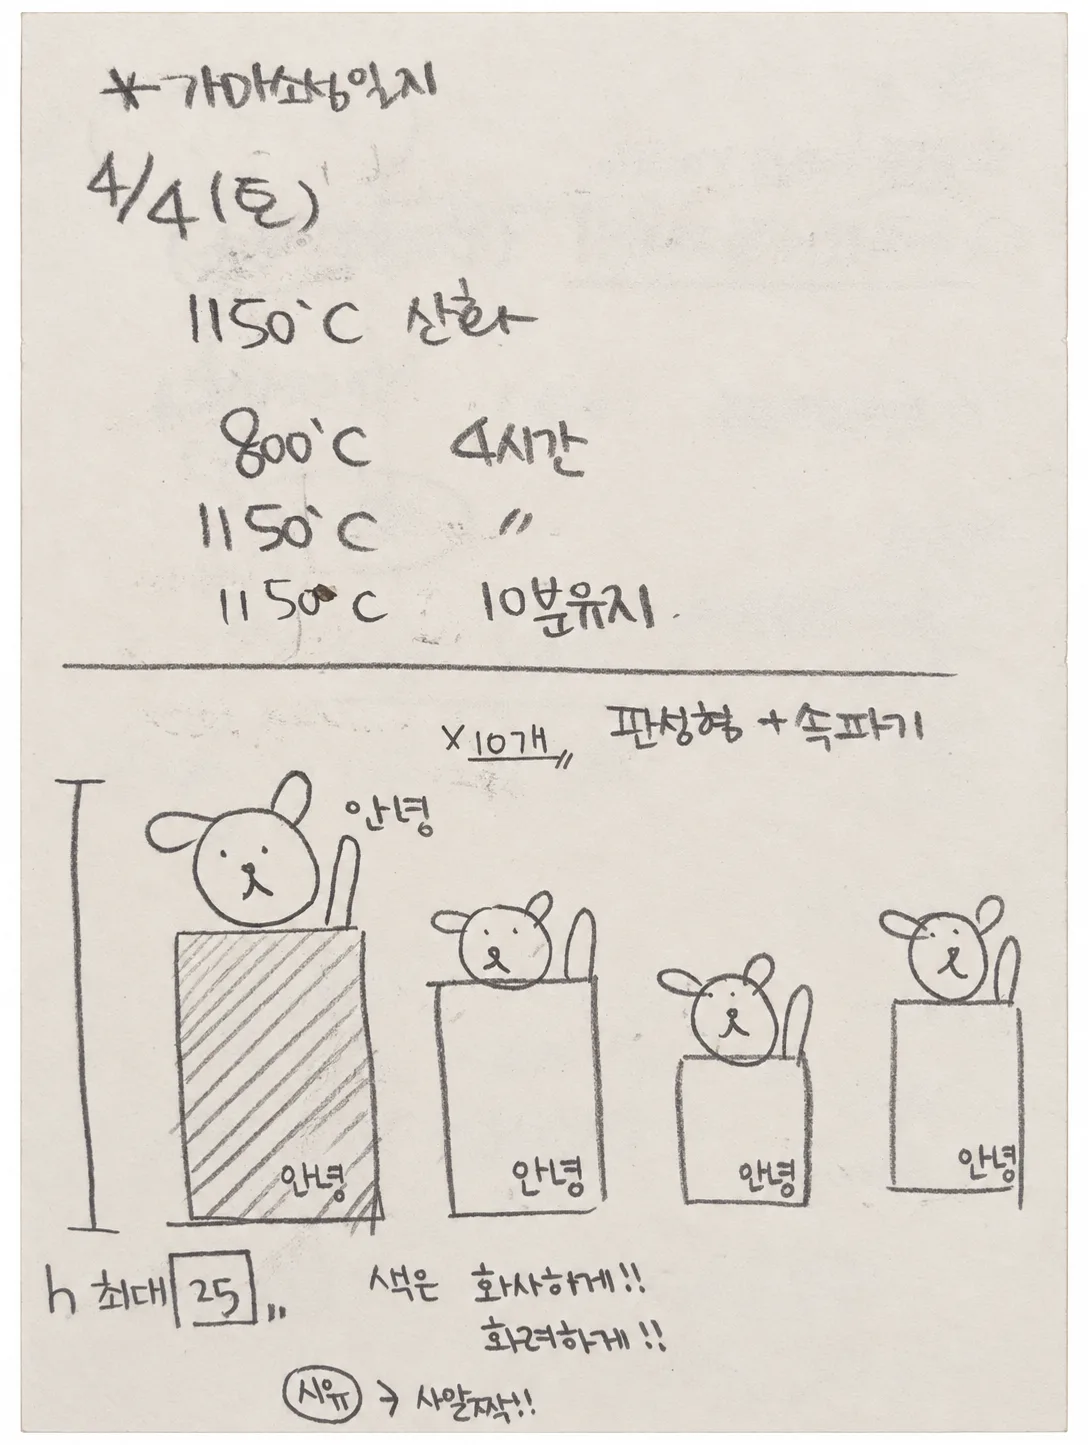 * 가마소성일지
4/4 (토)
1150°C 산화
800°C 4시간
1150°C 〃
1150°C 10분유지.
x10개〃 판성형 + 속파기
안녕
안녕
안녕
안녕
안녕
h 최대 25〃
색은 화사하게!!
화려하게!!
시유 → 사알짝!!